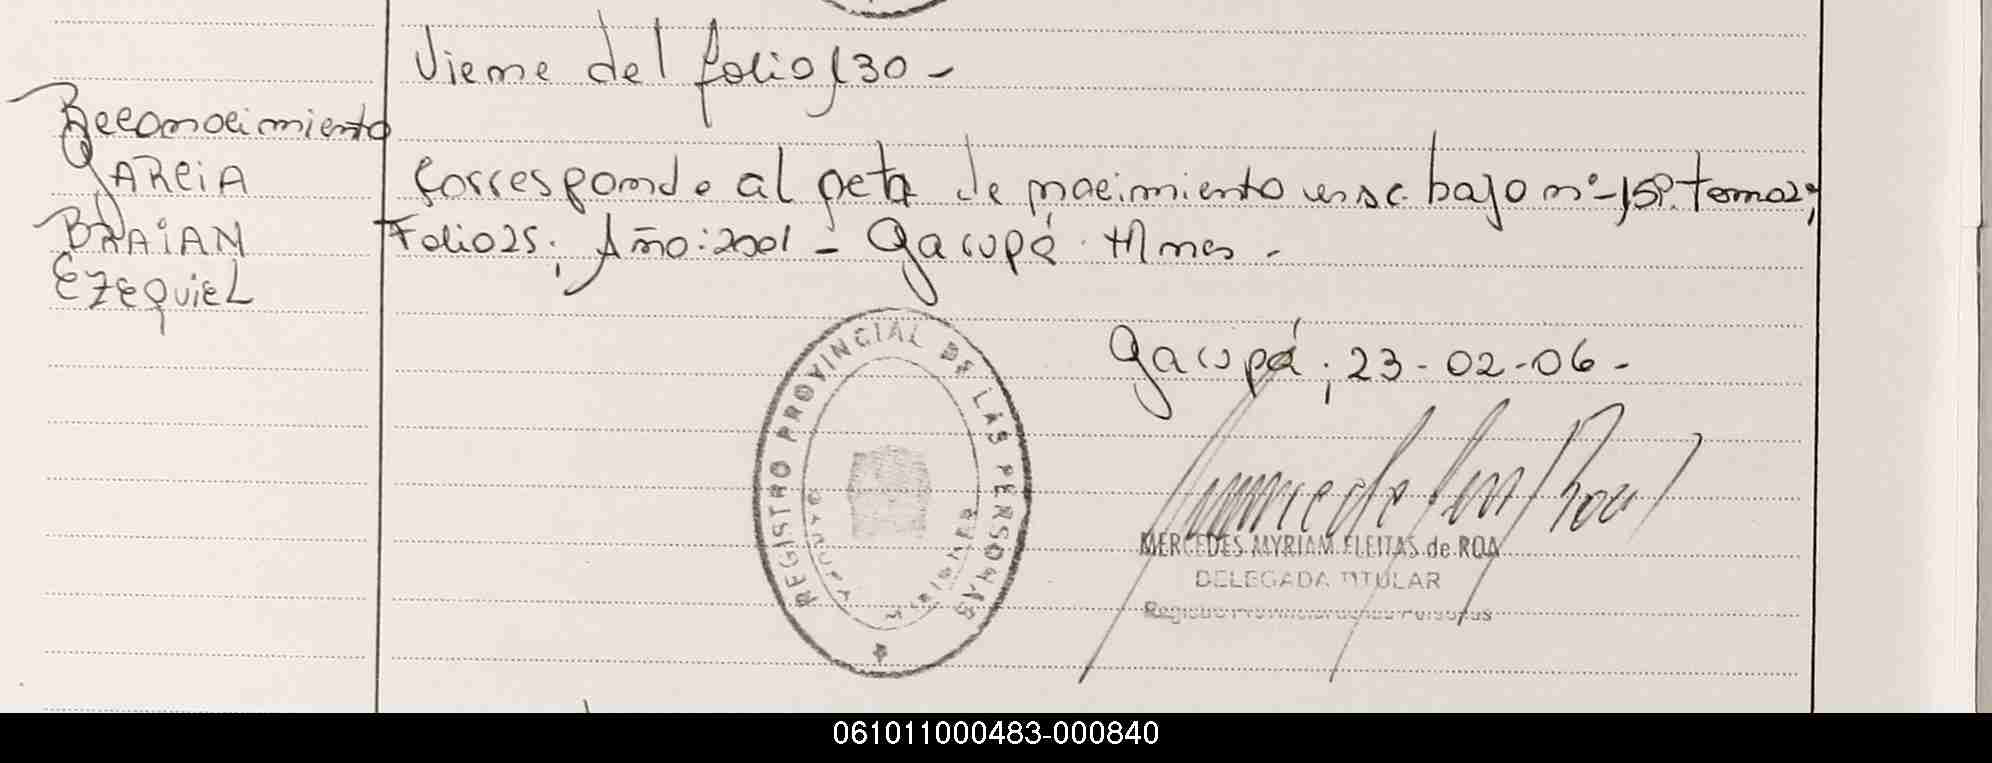 Viene del folio 130 -
Reconocimiento
GARCIA
BRAIAN
EZEQUIEL
Corresponde al acta de nacimiento insc. bajo nº - 159. tomo 2;
Folio 25; Año: 2001 - Garupá. Mnes -
Garupá, 23-02-06-
REGISTRO PROVINCIAL DE LAS PERSONAS
MISIONES
MERCEDES MYRIAM FLEITAS de ROA
DELEGADA TITULAR
Registro Provincial de las Personas
061011000483-000840